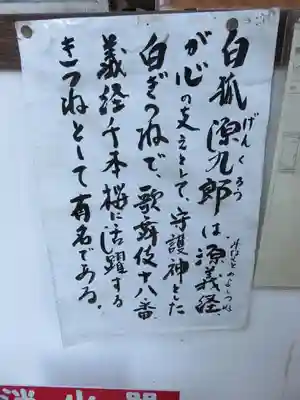 白狐源九郎は、源義経
げんくろう
みなもとのよしつね
が心の支えとして、守護神とした
白ぎつねで、歌舞伎十八番、
義経千本桜に活躍する
きつねとして有名である。
消火器